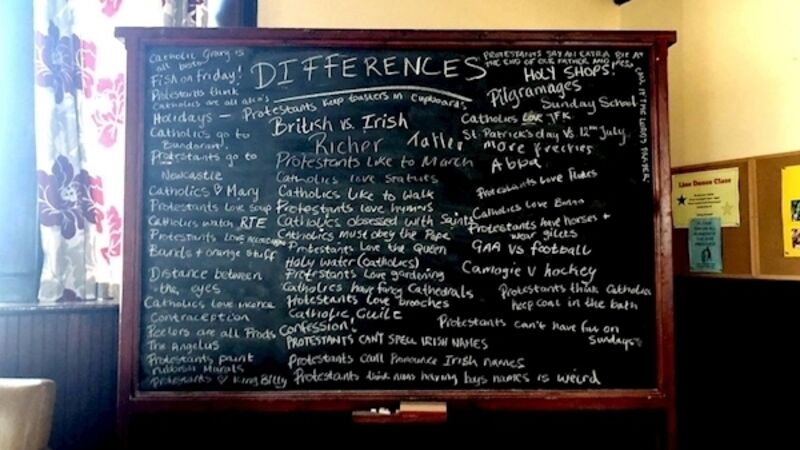 DIFFERENCES
Catholic Gravy is
all bisto
Fish on Friday!
Protestants think
Catholics are all
Holidays - Protestants keep toasters in cupboards
Catholics go to
Bundoran.
Protestants go to
Newcastle
Catholics ♡ Mary
Protestants love soup
Catholics watch RTE
Protestants Love
Bands + orange stuff
Distance between
the eyes
Catholics love incence
Contraception
Peelers are all Prods
The Angelus
Protestants paint
Murals
Protestants ♡ King Billy
British vs. Irish
Richer
Taller
Protestants like to March
Catholics love statues
Catholics like to walk
Protestants love hymns
Catholics obsessed with Saints
Catholics must obey the Pope
Protestants Love the Queen
Holy water (catholics)
Protestants love gardening
Catholics have fancy Cathedrals
Protestants love brooches
Catholic Guilt
Confession!
PROTESTANTS CAN'T SPELL IRISH NAMES
Protestants can't pronounce Irish names
Protestants think nuns having boys names is weird
PROTESTANTS SAY AN EXTRA BIT AT
THE END OF OUR FATHER AND
CALL IT THE LORDS PRAYER
HOLY SHOPS!
Pilgramages
Sunday School
Catholics Love JFK
St Patrick's day VS. 12th July
More freckles
Abba
Protestants Love Flutes
Catholics Love Bingo
Protestants have horses +
wear gilets
GAA VS football
Camogie V hockey
Protestants think Catholics
keep coal in the bath
Protestants can't have fun on
Sundays
Line Dance Class